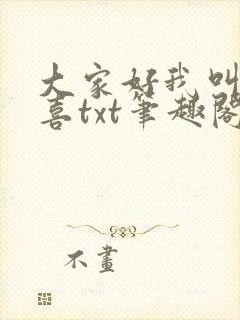 大家好我叫
喜txt筆趣閣
不畫